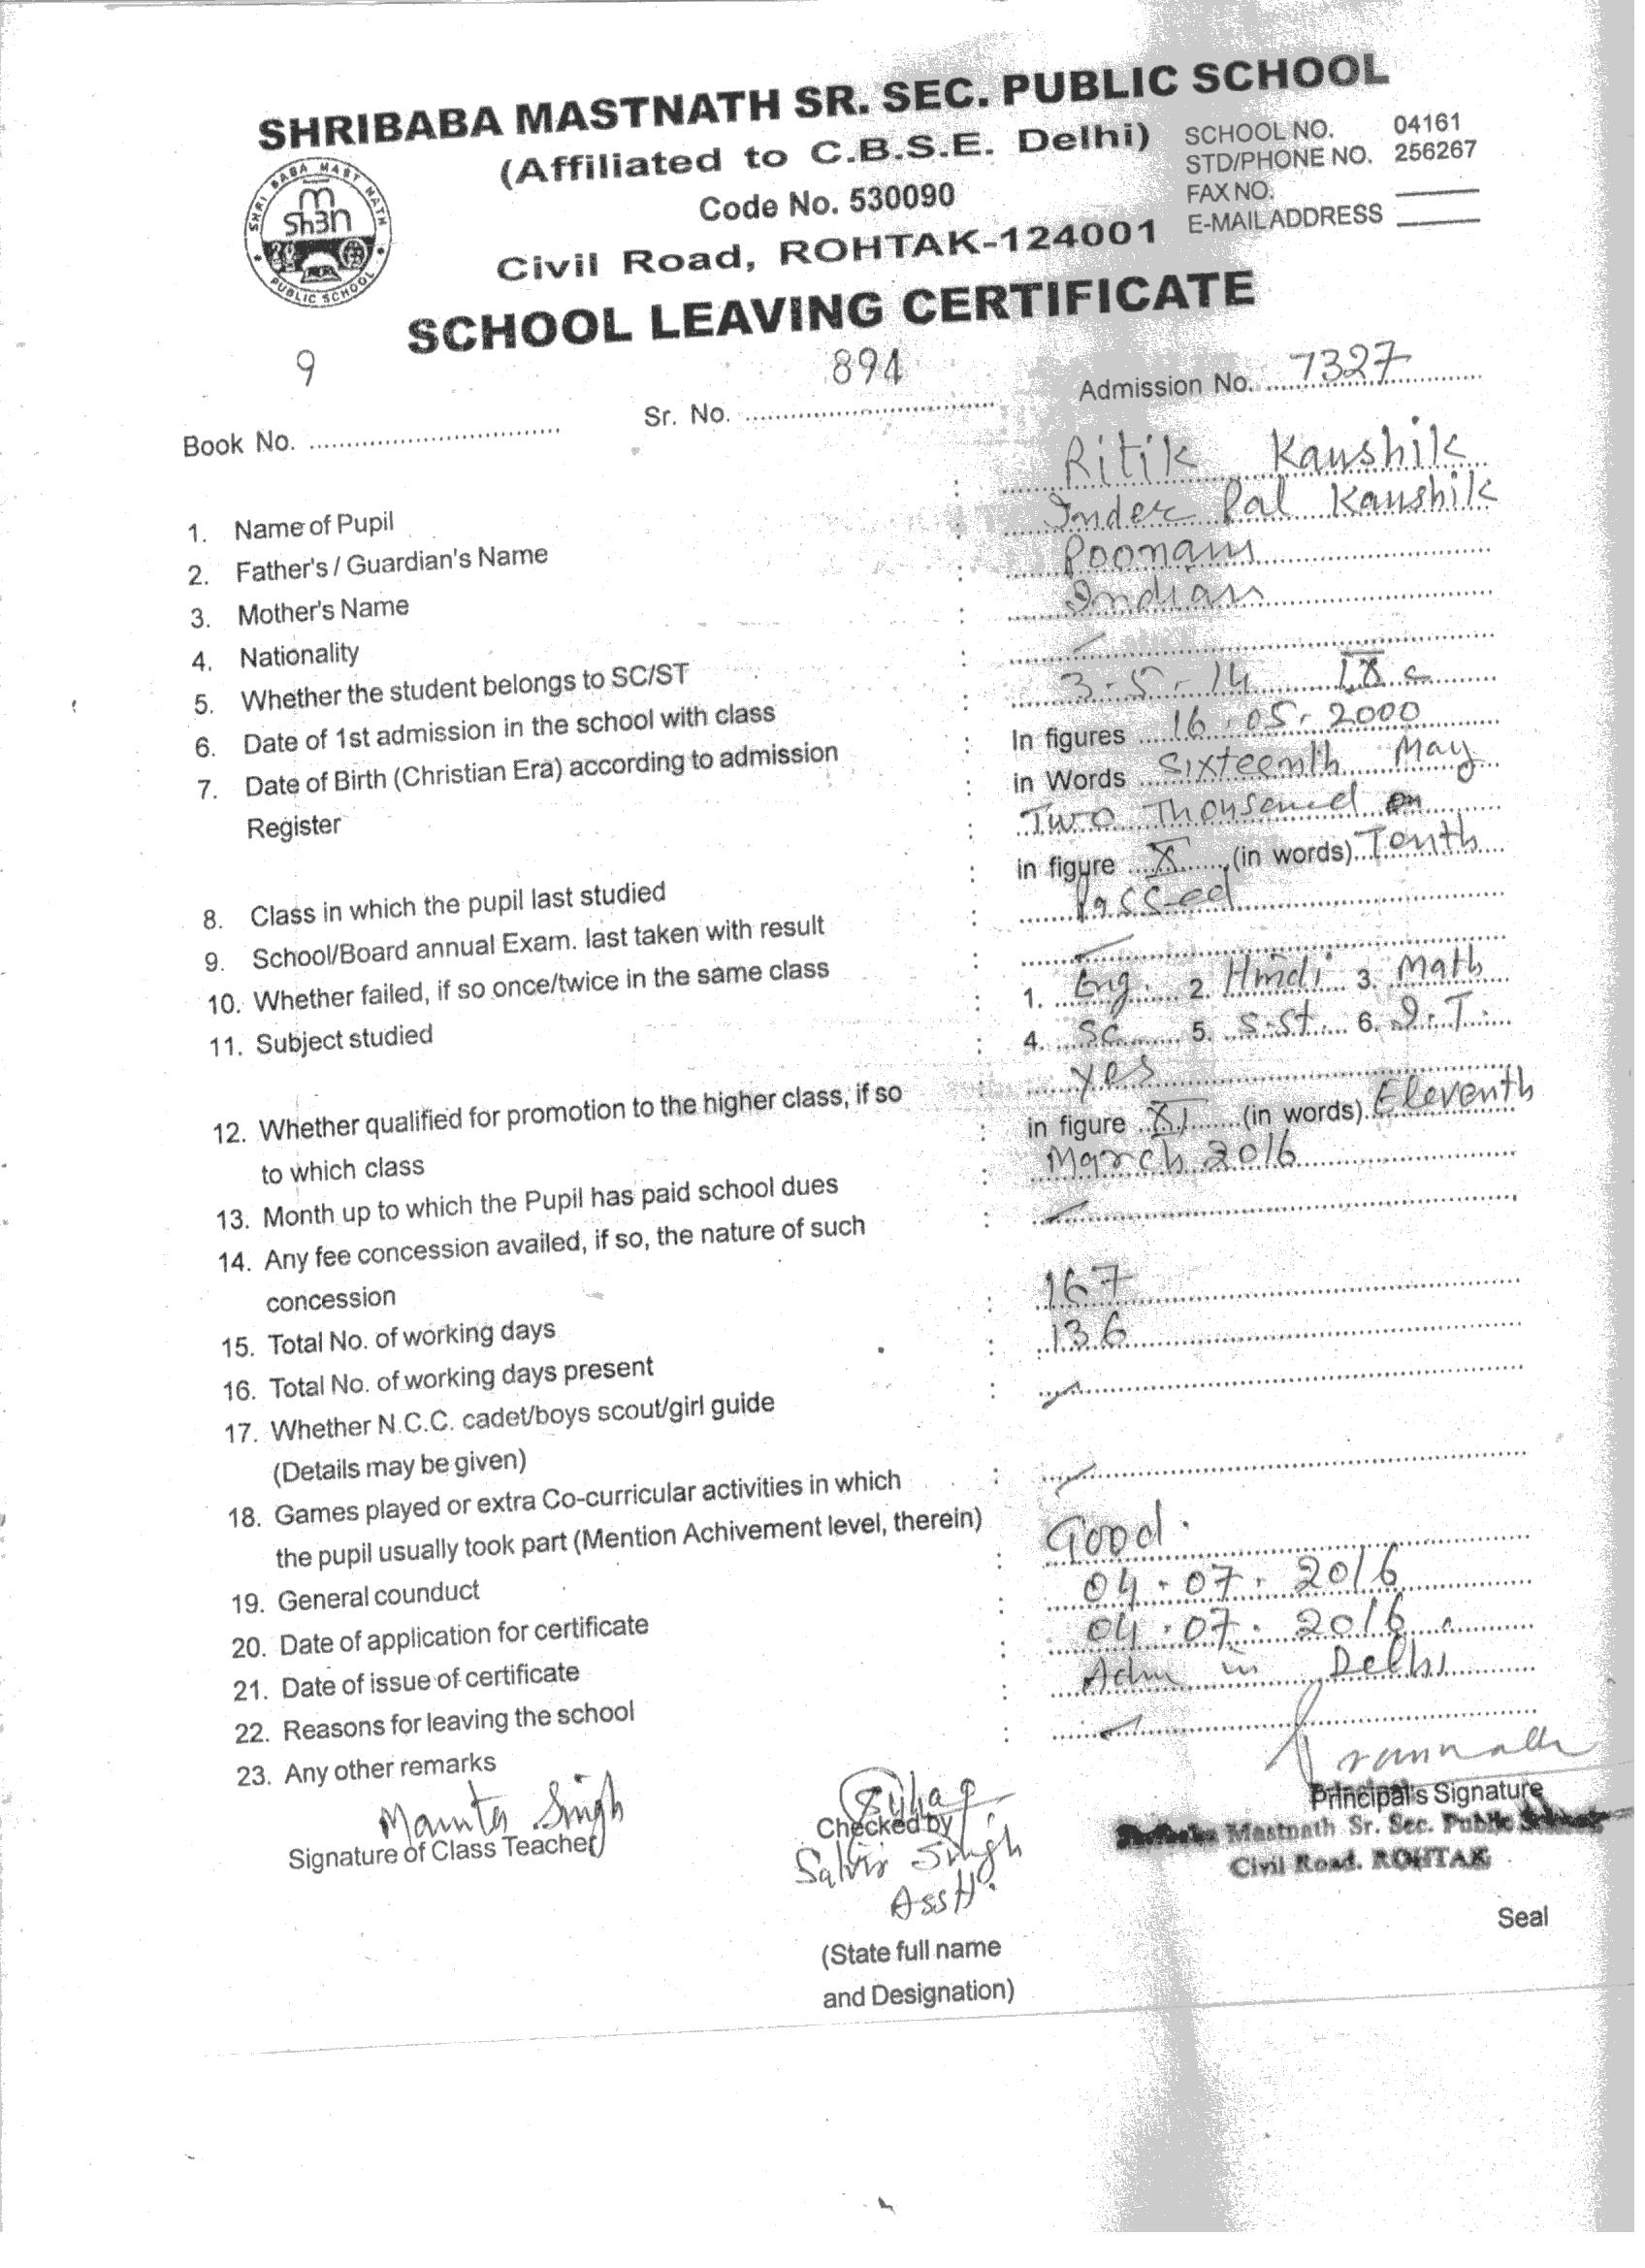 SHRIBABA MASTNATH SR. SEC. PUBLIC SCHOOL
(Affiliated to C.B.S.E. Delhi)
SCHOOL NO. 04161
STD/PHONE NO. 256267
Code No. 530090
FAX NO.
E-MAIL ADDRESS
Civil Road, ROHTAK-124001
SHRI BABA MAST NATH
Sh3n
PUBLIC SCHOOL
SCHOOL LEAVING CERTIFICATE
Book No. 9 Sr. No. 894 Admission No. 7327
1. Name of Pupil : Ritik Kaushik
2. Father's / Guardian's Name : Inder Pal Kaushik
3. Mother's Name : Poonam
4. Nationality : Indian
5. Whether the student belongs to SC/ST :
6. Date of 1st admission in the school with class : 3-5-14 IX c
7. Date of Birth (Christian Era) according to admission : In figures 16.05.2000
Register : in Words Sixteenth May
Two Thousand
8. Class in which the pupil last studied : in figure X (in words) Tenth
9. School/Board annual Exam. last taken with result : Passed
10. Whether failed, if so once/twice in the same class :
11. Subject studied : 1. Eng. 2. Hindi 3. Math
4. Sc 5. S.St. 6. I.T.
12. Whether qualified for promotion to the higher class, if so : yes
to which class : in figure XI (in words) Eleventh
13. Month up to which the Pupil has paid school dues : March 2016
14. Any fee concession availed, if so, the nature of such :
concession
15. Total No. of working days : 167
16. Total No. of working days present : 136
17. Whether N.C.C. cadet/boys scout/girl guide :
(Details may be given)
18. Games played or extra Co-curricular activities in which :
the pupil usually took part (Mention Achivement level, therein)
19. General counduct : Good.
20. Date of application for certificate : 04.07.2016
21. Date of issue of certificate : 04.07.2016
22. Reasons for leaving the school : Adm in Delhi
23. Any other remarks :
Mamta Singh
Signature of Class Teacher
Checked by
Singh
Asstt.
(State full name
and Designation)
Principal's Signature
Mastnath Sr. Sec. Public School
Civil Road. ROHTAK
Seal